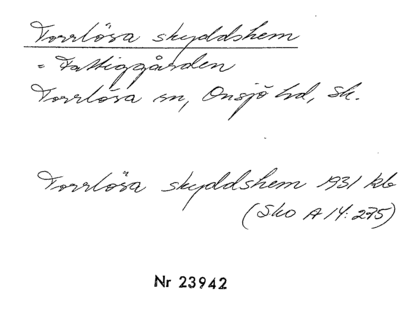 Torrlösa skyddshem
= Fattiggården
Torrlösa sn, Onsjö hd, Sk.
Torrlösa skyddshem 1931 kb
(Sko A 14:275)
Nr 23942